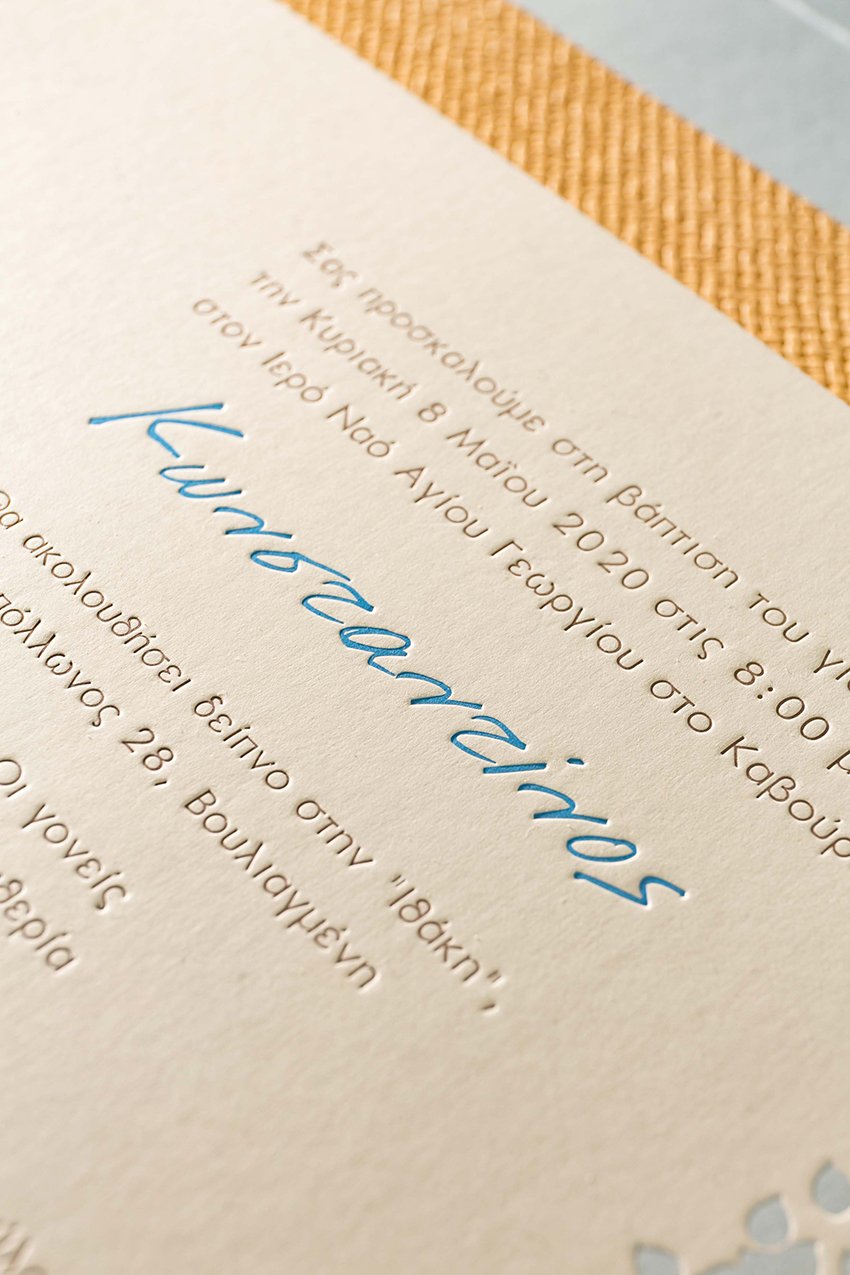 Σας προσκαλούμε στη βάπτιση του
την Κυριακή 8 Μαΐου 2020 στις 8:00
στον Ιερό Ναό Αγίου Γεωργίου στο
Κωνσταντίνος
θα ακολουθήσει δείπνο στην "Ιθάκη",
28, Βουλιαγμένη
Οι γονείς